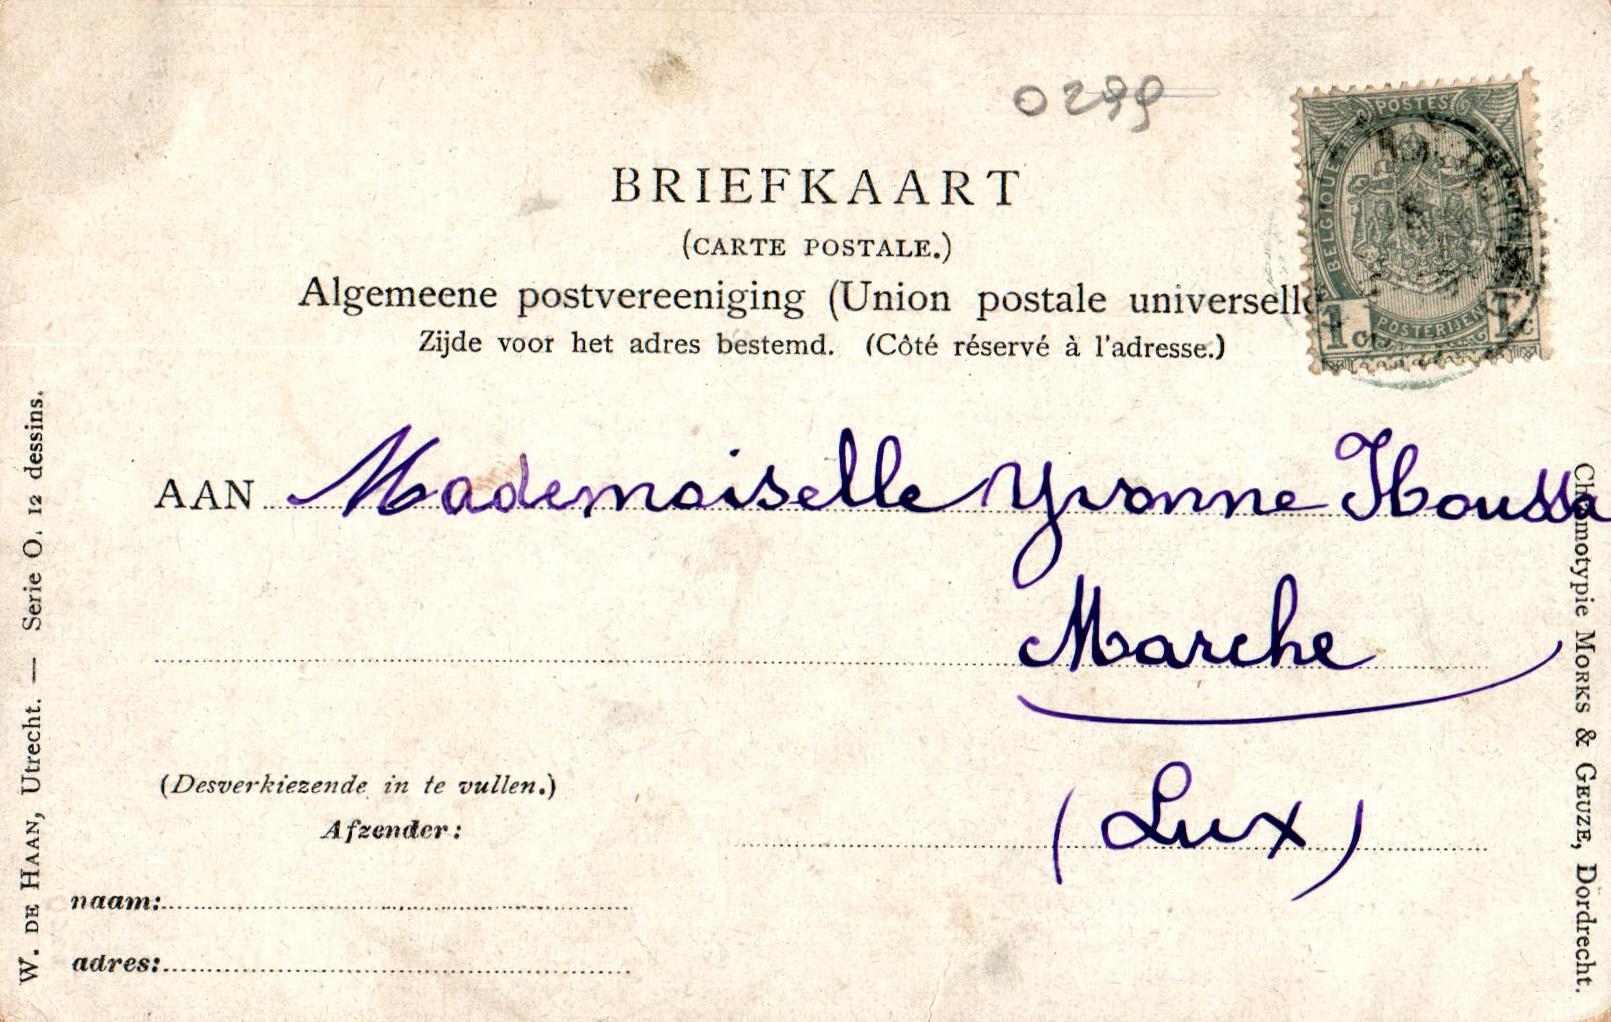 0299
BRIEFKAART
(CARTE POSTALE.)
Algemeene postvereeniging (Union postale universelle
Zijde voor het adres bestemd. (Côté réservé à l'adresse.)
POSTES
BELGIQUE
POSTERIJEN
1 c 1 c
AAN Mademoiselle Yvonne Houssa
Marche
(Lux)
(Desverkiezende in te vullen.)
Afzender:
naam:
adres:
W. DE HAAN, Utrecht. — Serie O. 12 dessins.
Chromotypie MORKS & GEUZE, Dordrecht.